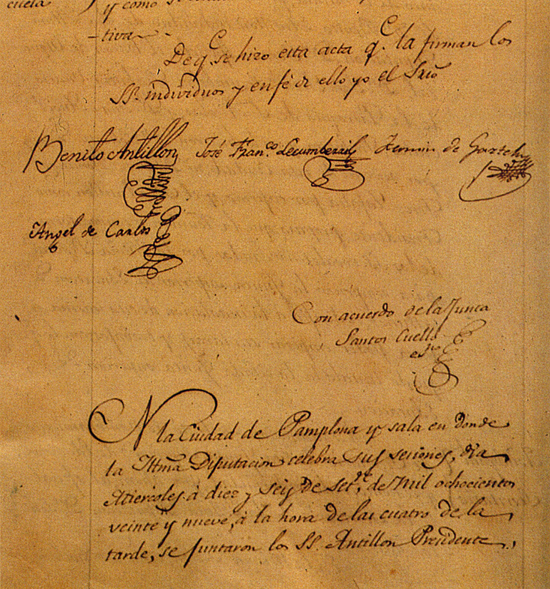 y como
tiva
De q.e se hizo esta acta q.e la firman los
SS. individuos y en fé de ello yo el Srio
Benito Antillon José Fran.co Lecumberri Fermin de
Angel de Carlos
Con acuerdo de la Junta
Santos Cuello
es.no
N la Ciudad de Pamplona y sala en donde
la Yltma Diputacion celebra sus sesiones, dia
Miercoles á diez y seis de Set.re de Mil ochocientos
veinte y nueve, á la hora de las cuatro de la
tarde, se juntaron los SS. Antillon Presidente,